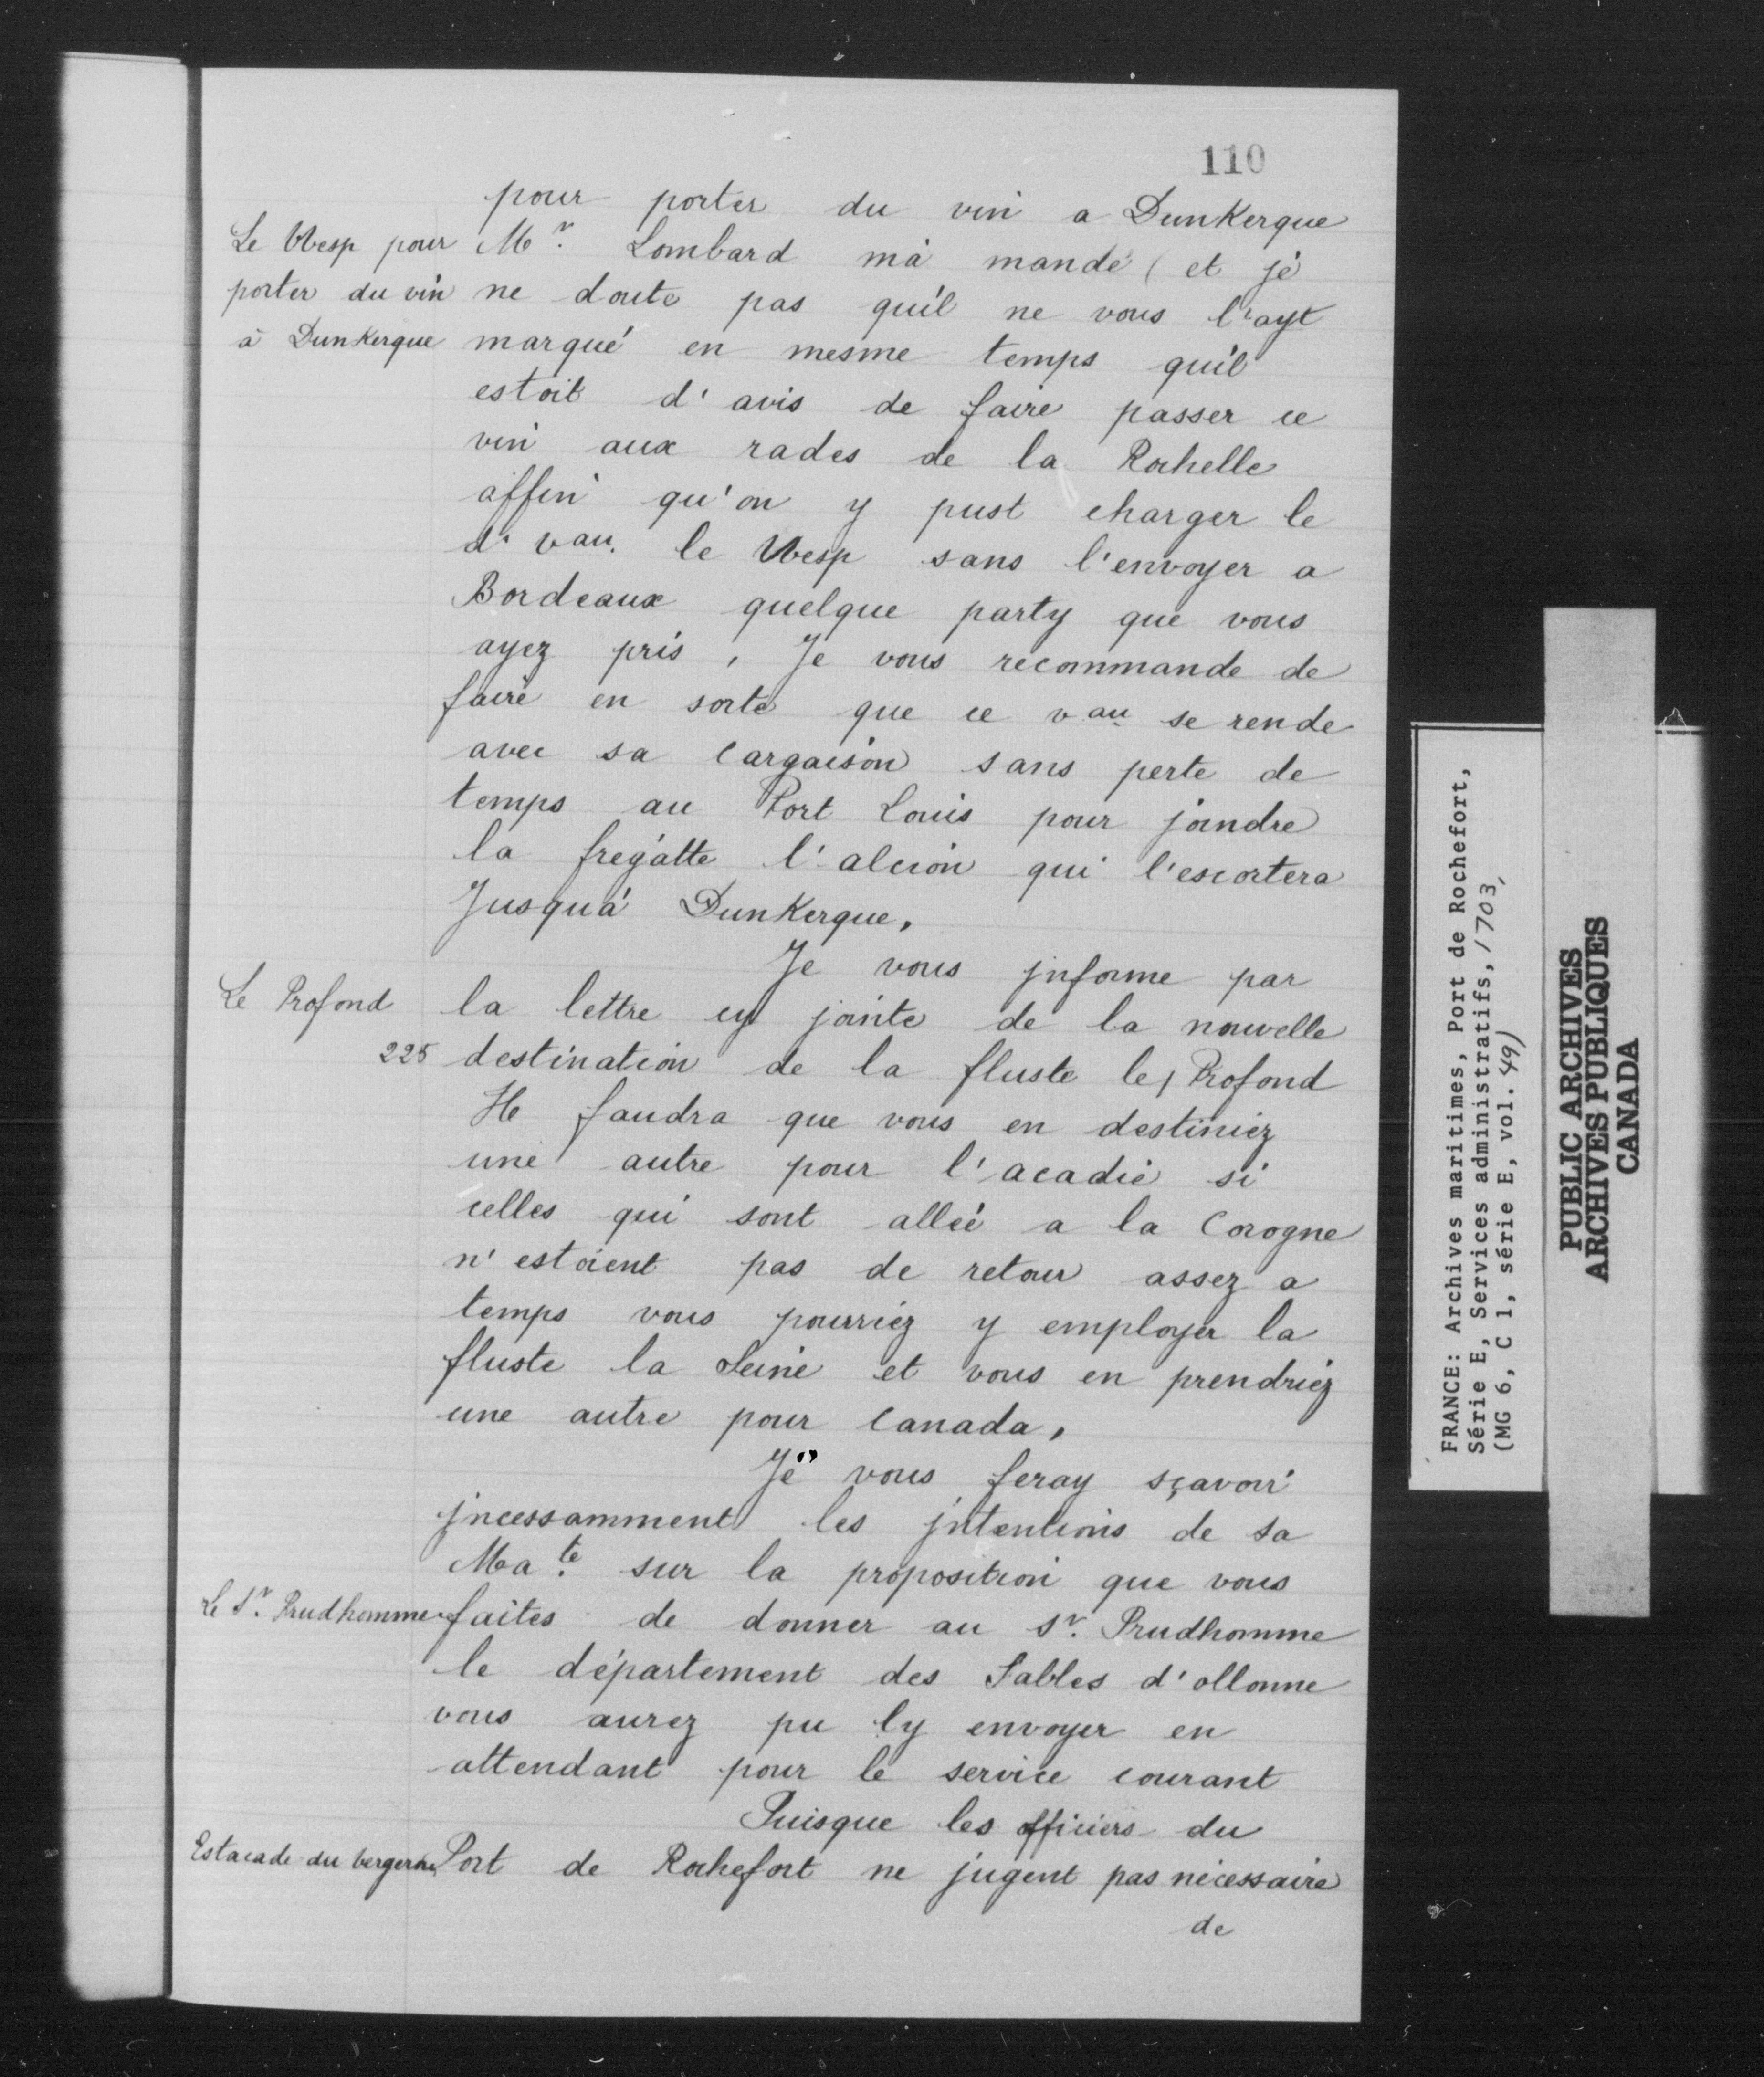 110
pour porter du vin a Dunkerque
Le Wesp pour
porter du vin
à Dunkerque
Mr. Lombard m'a mandé (et je
ne doute pas qu'il ne vous l'ayt
marqué en mesme temps qu'il
estoit d'avis de faire passer ce
vin aux rades de la Rochelle
affin qu'on y pust charger le
d. vau. le Wesp sans l'envoyer a
Bordeaux quelque party que vous
ayez pris, Je vous recommande de
faire en sorte que ce vau se rende
avec sa cargaison sans perte de
temps au Port Louis pour joindre
la fregatte l'alcion qui l'escortera
Jusqu'á Dunkerque,
Je vous jnforme par
Le Profond
la lettre cy jointe de la nouvelle
225
destination de la fluste le, Profond
Il faudra que vous en destiniez
une autre pour l'acadie si
celles qui sont allée a la Corogne
n'estoient pas de retour assez a
temps vous pourriez y employer la
fluste la Seine et vous en prendriez
une autre pour Canada,
Je vous feray sçavoir
jncessamment les jntentions de sa
Ma.te sur la proposition que vous
Le Sr. Prudhomme
faites de donner au Sr. Prudhomme
le département des Sables d'ollonne
vous aurez pu ly envoyer en
attendant pour le service courant
Puisque les officiers du
Estacade du
Port de Rochefort ne jugent pas nécessaire
de
FRANCE: Archives maritimes, Port de Rochefort,
Série E, Services administratifs, 1703,
(MG 6, C 1, série E, vol. 49)
PUBLIC ARCHIVES
ARCHIVES PUBLIQUES
CANADA